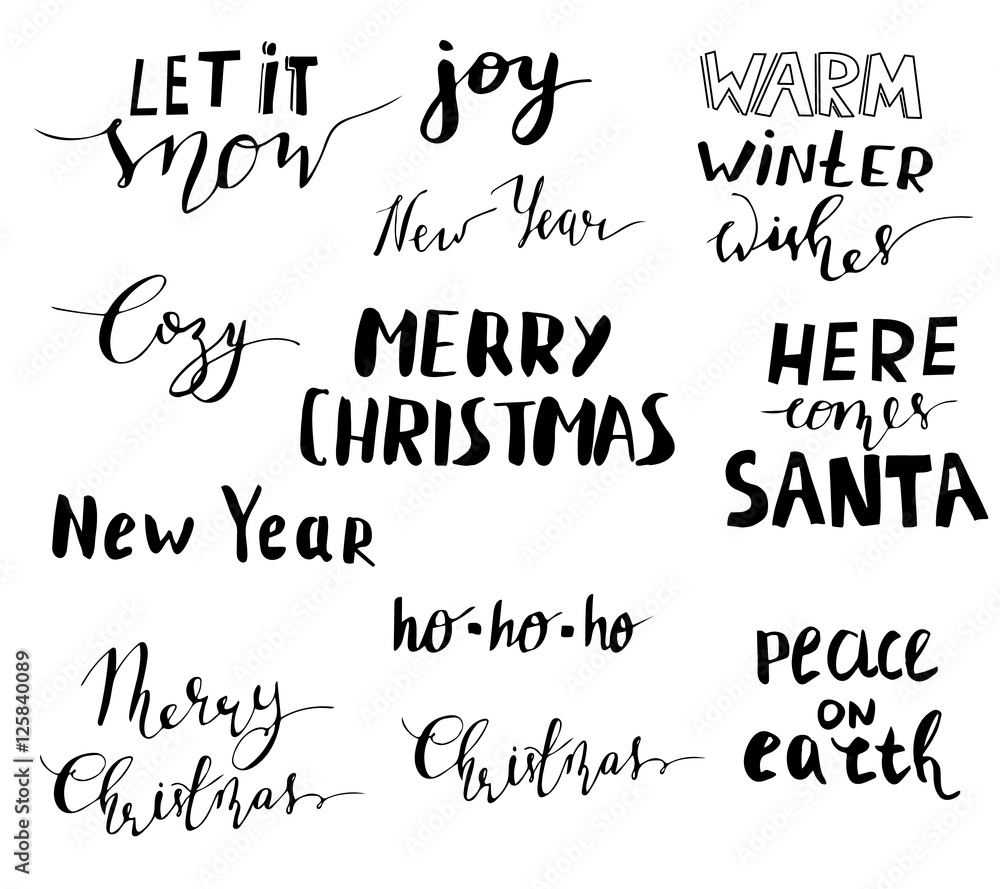 LET iT
snow
joy
WARM
WiNtER
wishes
New Year
Cozy
MERRY
CHRISTMAS
HERE
comes
SANTA
New Year
ho·ho·ho
Merry
Christmas
Christmas
peace
ON
earth
Adobe Stock | #125840089